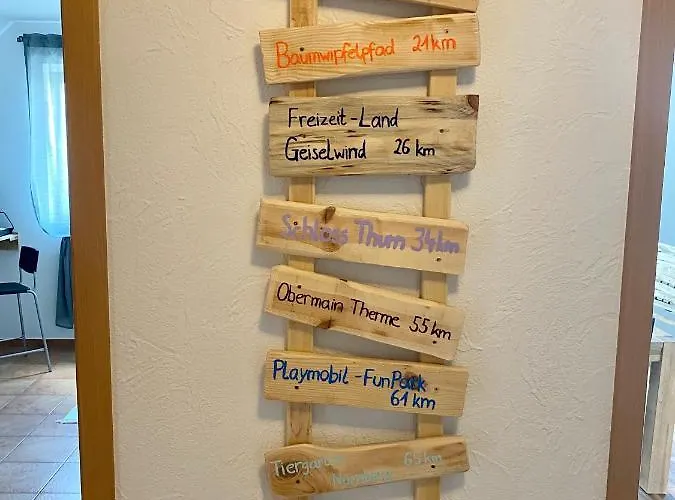 Baumwipfelpfad 21km
Freizeit-Land
Geiselwind 26 km
Schloss Thurn 34km
Obermain Therme 55 km
Playmobil-FunPark
61 km
Tiergarten
Nürnberg 65km